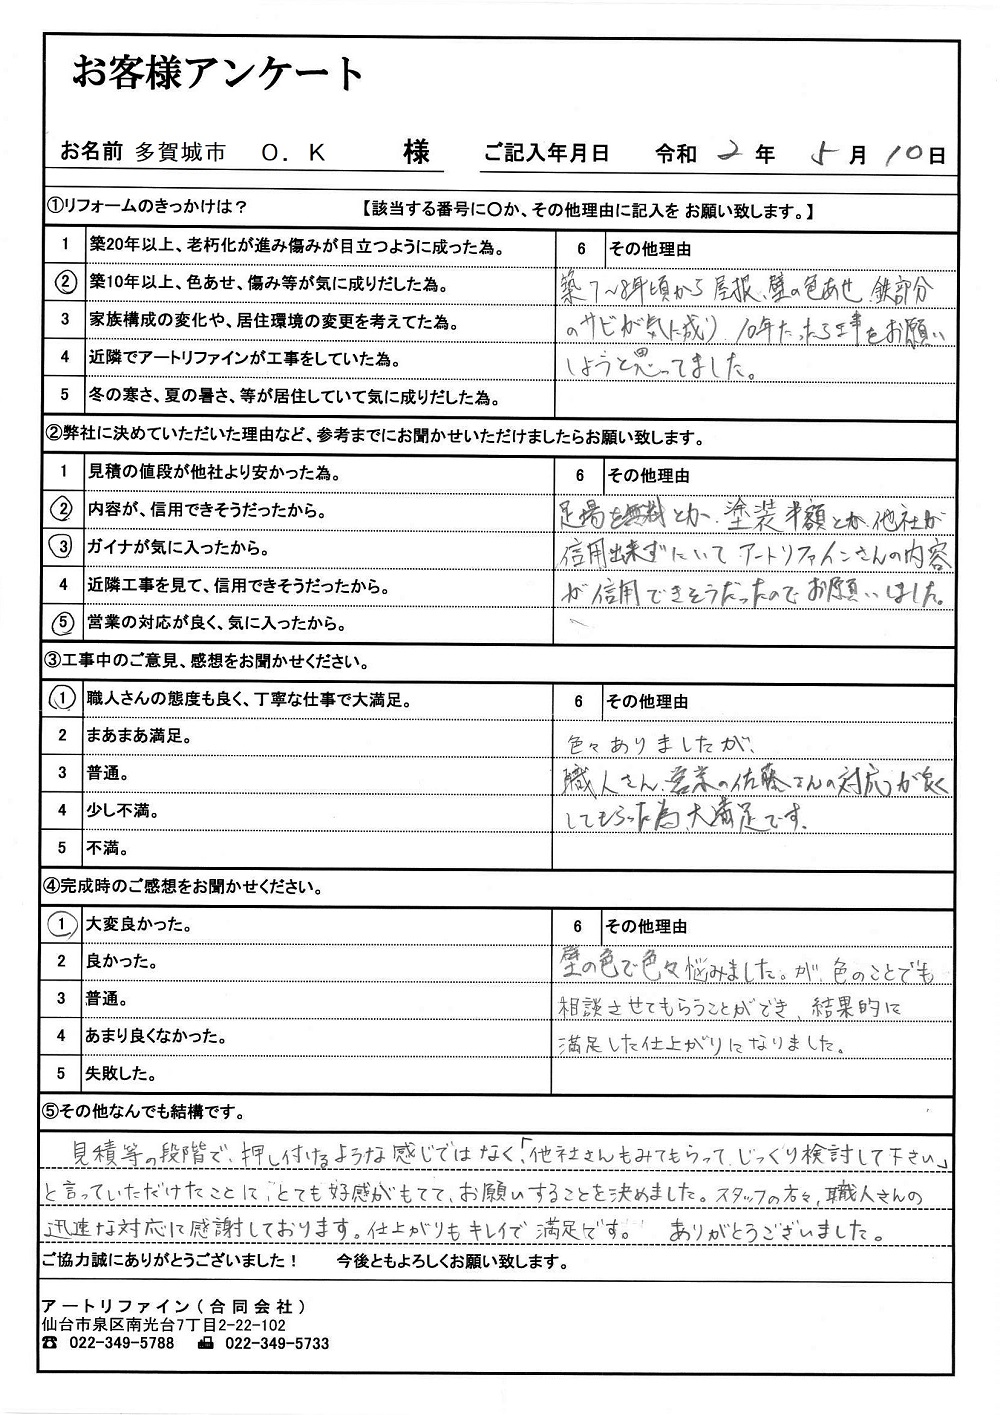 お客様アンケート
お名前 多賀城市 O. K 様 ご記入年月日 令和 2 年 5 月 10 日
①リフォームのきっかけは? 【該当する番号に〇か、その他理由に記入を お願い致します。】
1 築20年以上、老朽化が進み傷みが目立つように成った為。 6 その他理由
② 築10年以上、色あせ、傷み等が気に成りだした為。 築7~8年頃から屋根、壁の色あせ 鉄部分
3 家族構成の変化や、居住環境の変更を考えてた為。 のサビが気に成り、10年たったら工事をお願い
4 近隣でアートリファインが工事をしていた為。 しようと思ってました。
5 冬の寒さ、夏の暑さ、等が居住していて気に成りだした為。
②弊社に決めていただいた理由など、参考までにお聞かせいただけましたらお願い致します。
1 見積の値段が他社より安かった為。 6 その他理由
② 内容が、信用できそうだったから。 足場を無料とか、塗装半額とか、他社が
③ ガイナが気に入ったから。 信用出来ずにいて アートリファインさんの内容
4 近隣工事を見て、信用できそうだったから。 が信用できそうだったのでお願いしました。
⑤ 営業の対応が良く、気に入ったから。
③工事中のご意見、感想をお聞かせください。
① 職人さんの態度も良く、丁寧な仕事で大満足。 6 その他理由
2 まあまあ満足。 色々ありましたが、
3 普通。 職人さん、営業の佐藤さんの対応が良く
4 少し不満。 してもらった為、大満足です。
5 不満。
④完成時のご感想をお聞かせください。
① 大変良かった。 6 その他理由
2 良かった。 壁の色で色々悩みました。が、色のことでも
3 普通。 相談させてもらうことができ、結果的に
4 あまり良くなかった。 満足した仕上がりになりました。
5 失敗した。
⑤その他なんでも結構です。
見積等の段階で、押し付けるような感じではなく、「他社さんもみてもらって、じっくり検討して下さい」
と言っていただけたことに、とても好感がもてて、お願いすることを決めました。スタッフの方々、職人さんの
迅速な対応に感謝しております。仕上がりもキレイで満足です。 ありがとうございました。
ご協力誠にありがとうございました! 今後ともよろしくお願い致します。
アートリファイン(合同会社)
仙台市泉区南光台7丁目2-22-102
☎ 022-349-5788 📠 022-349-5733